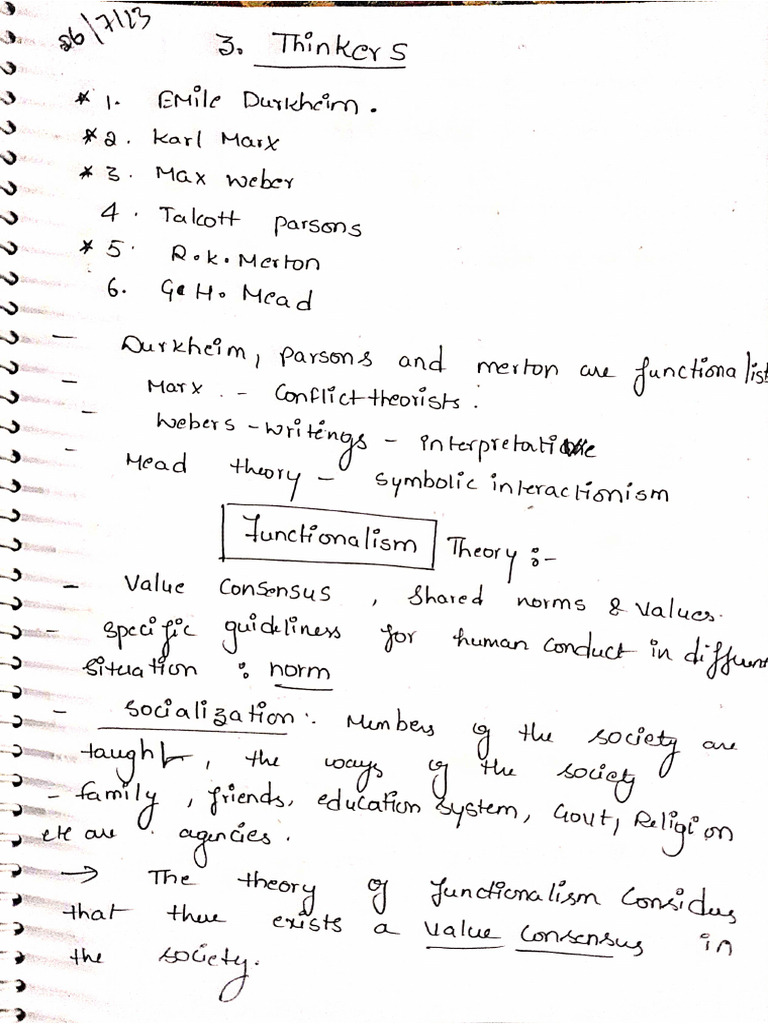 26/7/23
3. Thinkers
* 1. Emile Durkheim.
* 2. Karl Marx
* 3. Max weber
4. Talcott parsons
* 5. R.K. Merton
6. G.H. Mead
- Durkheim, parsons and merton are functionalist
- Marx. - Conflict theorists.
- Webers - writings - interpretative
- Mead theory - symbolic interactionism
Functionalism Theory :-
- Value Consensus, shared norms & values.
- specific guideliness for human conduct in different
situation : norm
- Socialization: Members of the society are
taught, the ways of the society
- family, friends, education system, Govt, Religion
etc are agencies.
→ The theory of functionalism considers
that there exists a value consensus in
the society.